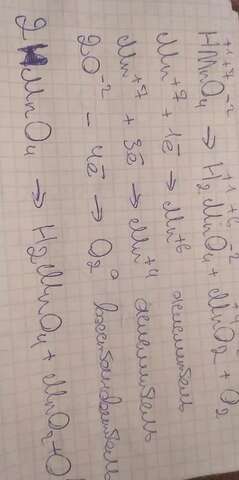 +1 +7 -2 +1 +6 -2
HMnO₄ → H₂MnO₄ + MnO₂ + O₂
Mn⁺⁷ + 1ē → Mn⁺⁶ окислитель
Mn⁺⁷ + 3ē → Mn⁺⁴ окислитель
2O⁻² - 4ē → O₂⁰ восстановитель
2HMnO₄ → H₂MnO₄ + MnO₂ + O